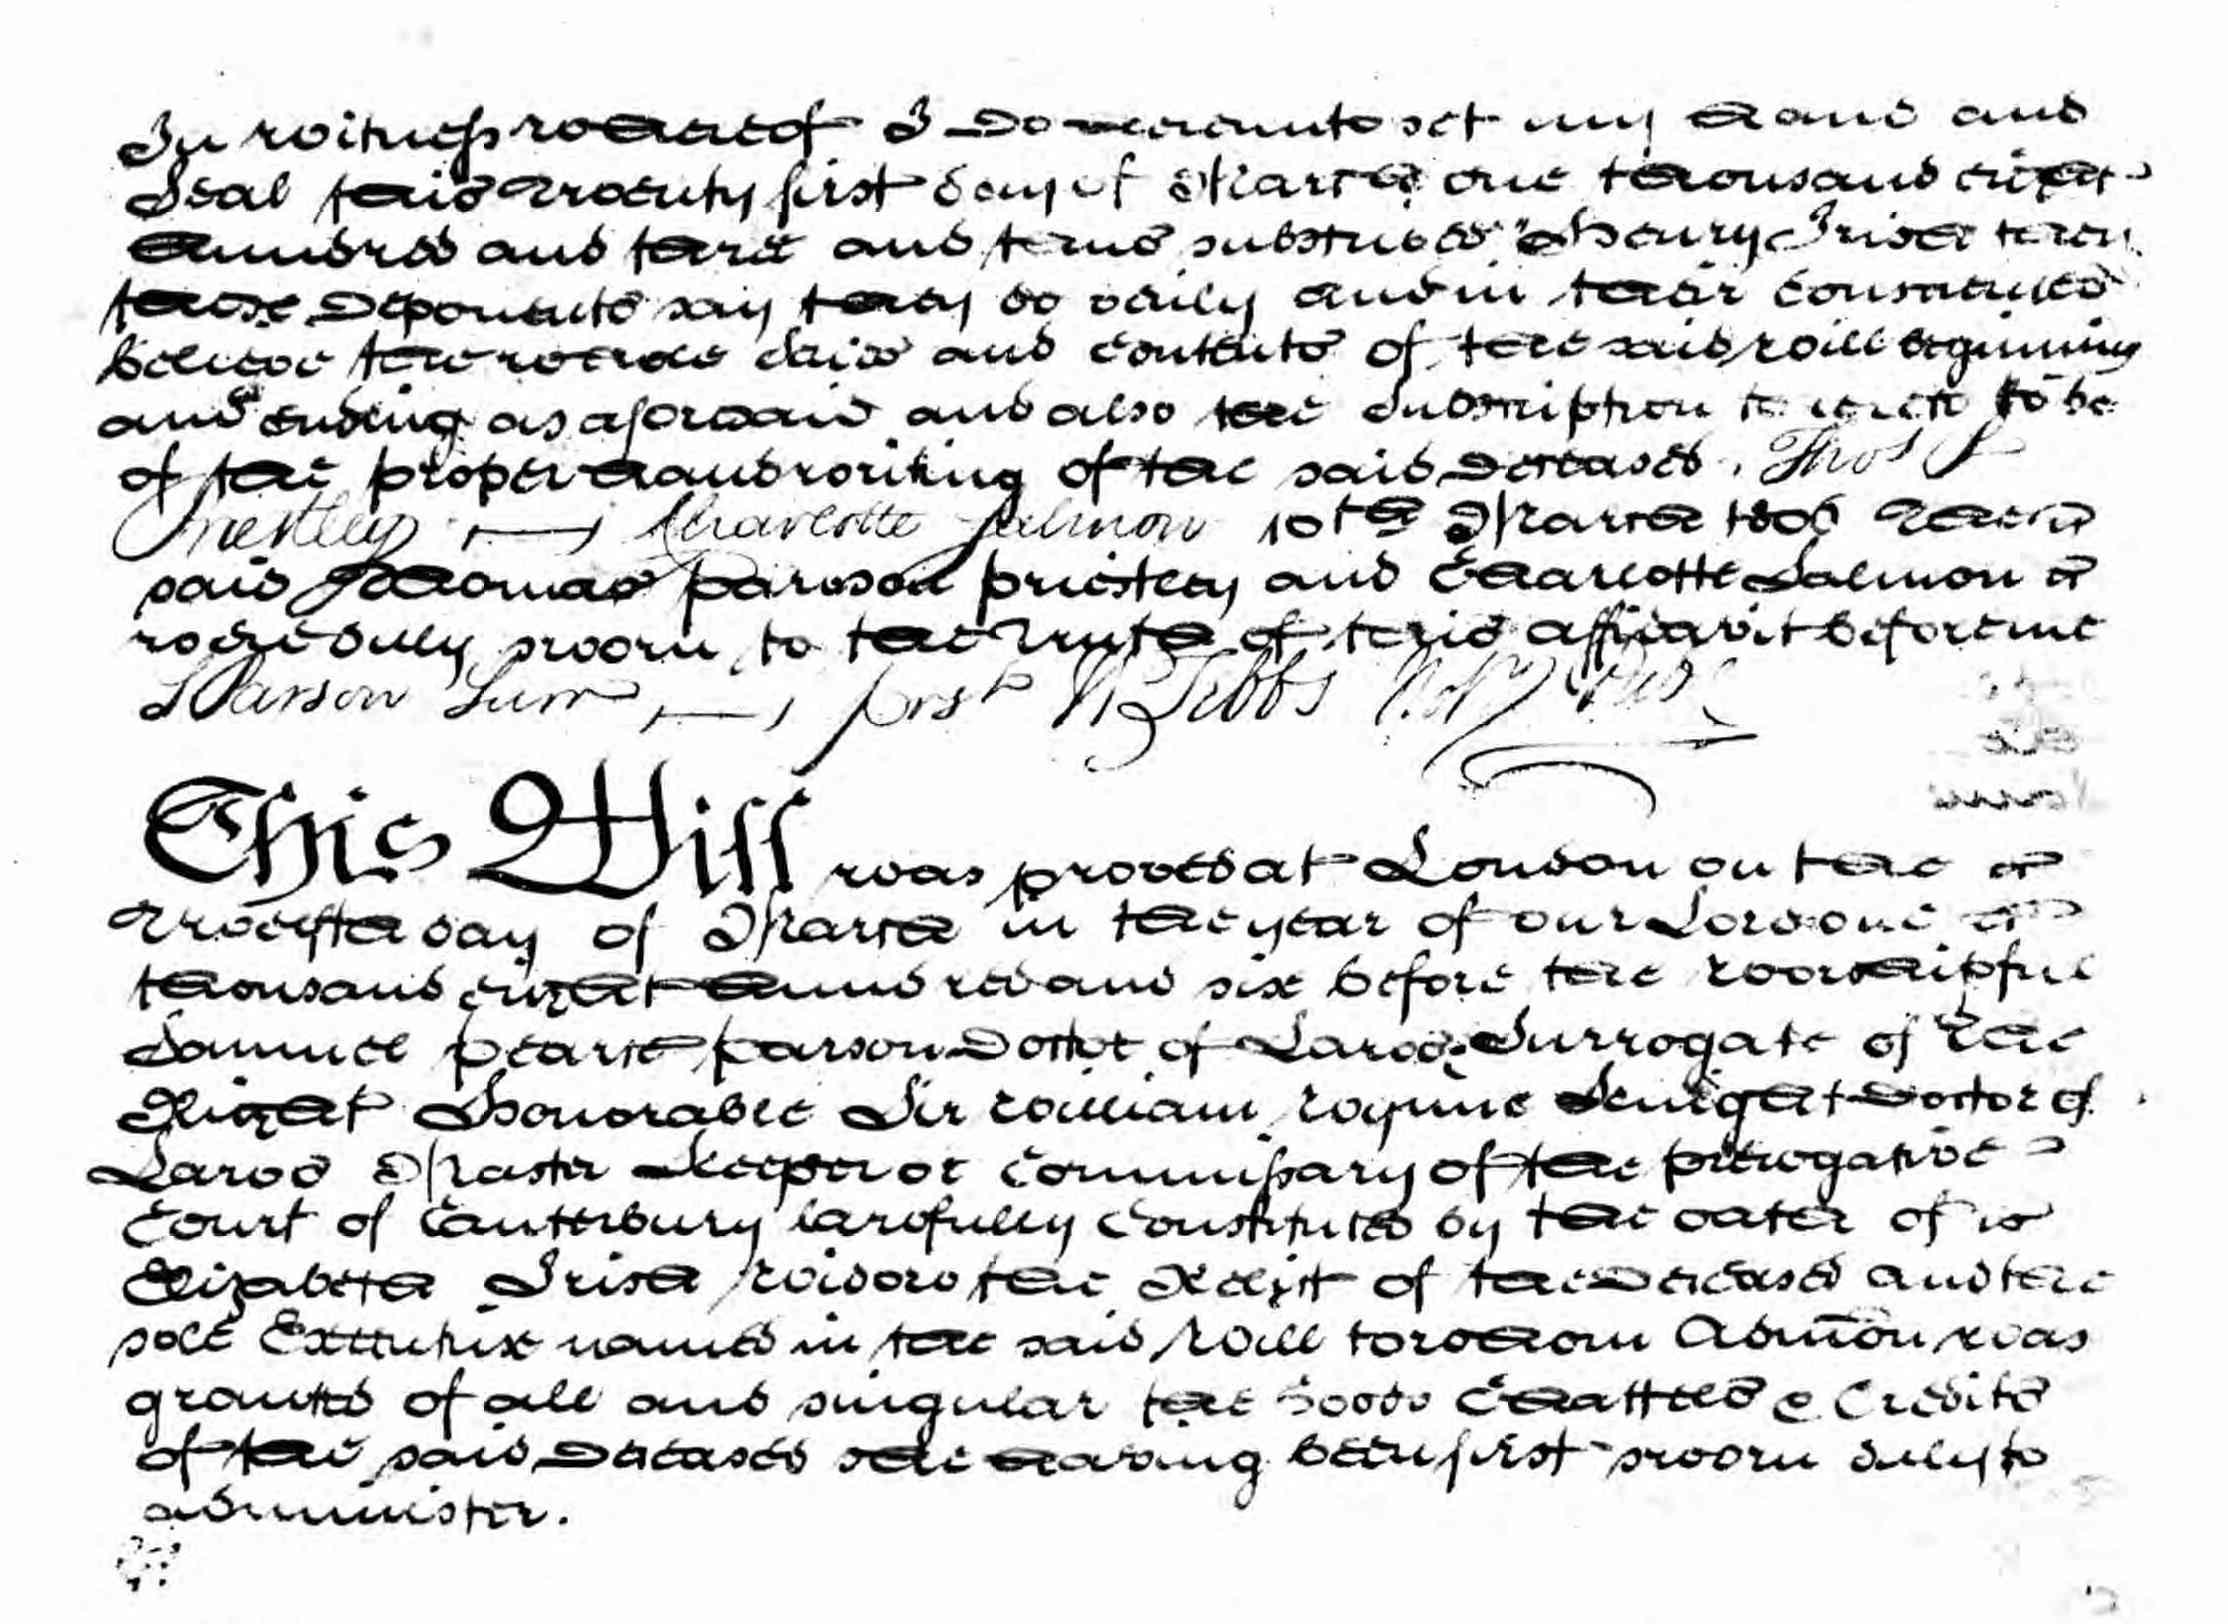 In witness whereof I Do hereunto set my hand and
Seal this Twenty first day of March one thousand eight
hundred and three and thus subscribed "Henry Irish they
these Deponents say they do verily and in their Consciences
believe the whole Series and Contents of the said Will beginning
and ending as aforesaid and also the Subscription thereto to be
of the proper handwriting of the said Deceased. Thos P
Priestley Charlotte Salmon 10th March 1806 The
said Thomas Parson Priestley and Charlotte Salmon
were duly sworn to the Truth of this affidavit before me
S Parson Surr prst Tebbs Not Pub
This Will was proved at London on the
Twelfth day of March in the year of our Lord one
thousand eight hundred and six before the Worshipful
Samuel Pearce Parson Doctor of Laws Surrogate of The
Right Honorable Sir William Wynne Knight Doctor of
Laws Master Keeper or Commissary of the Prerogative
Court of Canterbury lawfully Constituted by the oath of
Elizabeth Irish Widow the Relict of the Deceased and the
sole Executrix named in the said Will to whom Admon was
granted of all and singular the Goods Chattels & Credits
of the said Deceased she having been first sworn duly to
administer.